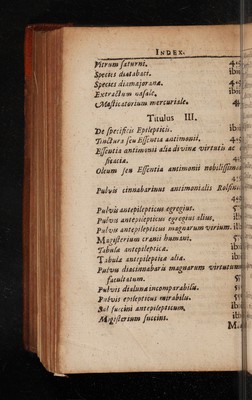 INDEX.
Vitrum saturni.
Species diatabaci. ibi
Species diamajorana.
Extractum nasale. ibi
Masticatorium mercuriale.
Titulus III.
De specificis Epilepticis. ibi
Tinctura seu Essentia antimonii.
Essentia antimonii alia divina virtutis ac
ficacia.
Oleum seu Essentia antimonii nobilissima
Pulvis cinnabarinus antimonialis Rolfin
Pulvis antepilepticus egregius.
Pulvis antepilepticus egregius alius. ib
Pulvis antepilepticus magnarum virium. ib
Magisterium cranii humani.
Tabula antepileptica. ib
Tabula antepileptica alia. ib
Pulvis diacinnabaris magnarum virtutum
facultatum.
Pulvis dialuna incomparabilis.
Pulvis epilepticus mirabilis.
Sal succini antepilepticum. ib
Magisterium succini. ib